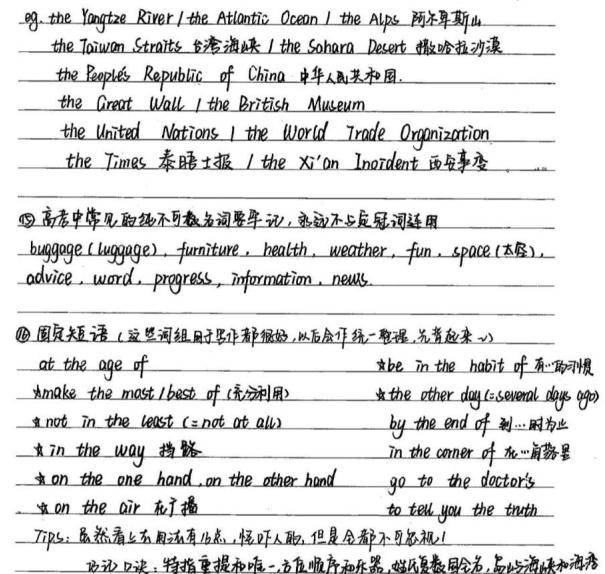 eg. the Yangtze River / the Atlantic Ocean / the Alps 阿尔卑斯山
the Taiwan Straits 台湾海峡 / the Sahara Desert 撒哈拉沙漠
the People's Republic of China 中华人民共和国.
the Great Wall / the British Museum
the United Nations / the World Trade Organization
the Times 泰晤士报 / the Xi'an Incident 西安事变
⑮ 高考中常见的纯不可数名词要牢记，永远不与定冠词连用
buggage (luggage), furniture, health, weather, fun, space (太空),
advice, word, progress, information, news.
⑯ 固定短语 (这些词组用于写作都很好，以后会作统一整理，先背起来~)
at the age of ☆be in the habit of 有…的习惯
☆make the most / best of (充分利用) ☆the other day (=several days ago)
☆not in the least (=not at all) by the end of 到…时为止
☆in the way 挡路 in the corner of 在…角落里
☆on the one hand, on the other hand go to the doctor's
☆on the air 在广播 to tell you the truth
Tips: 虽然看上去用法有16点，怪吓人的，但是全都不可忽视！
口诀：特指重提和唯一，方位顺序和乐器，姓氏复数国全名，岛山海峡和海湾